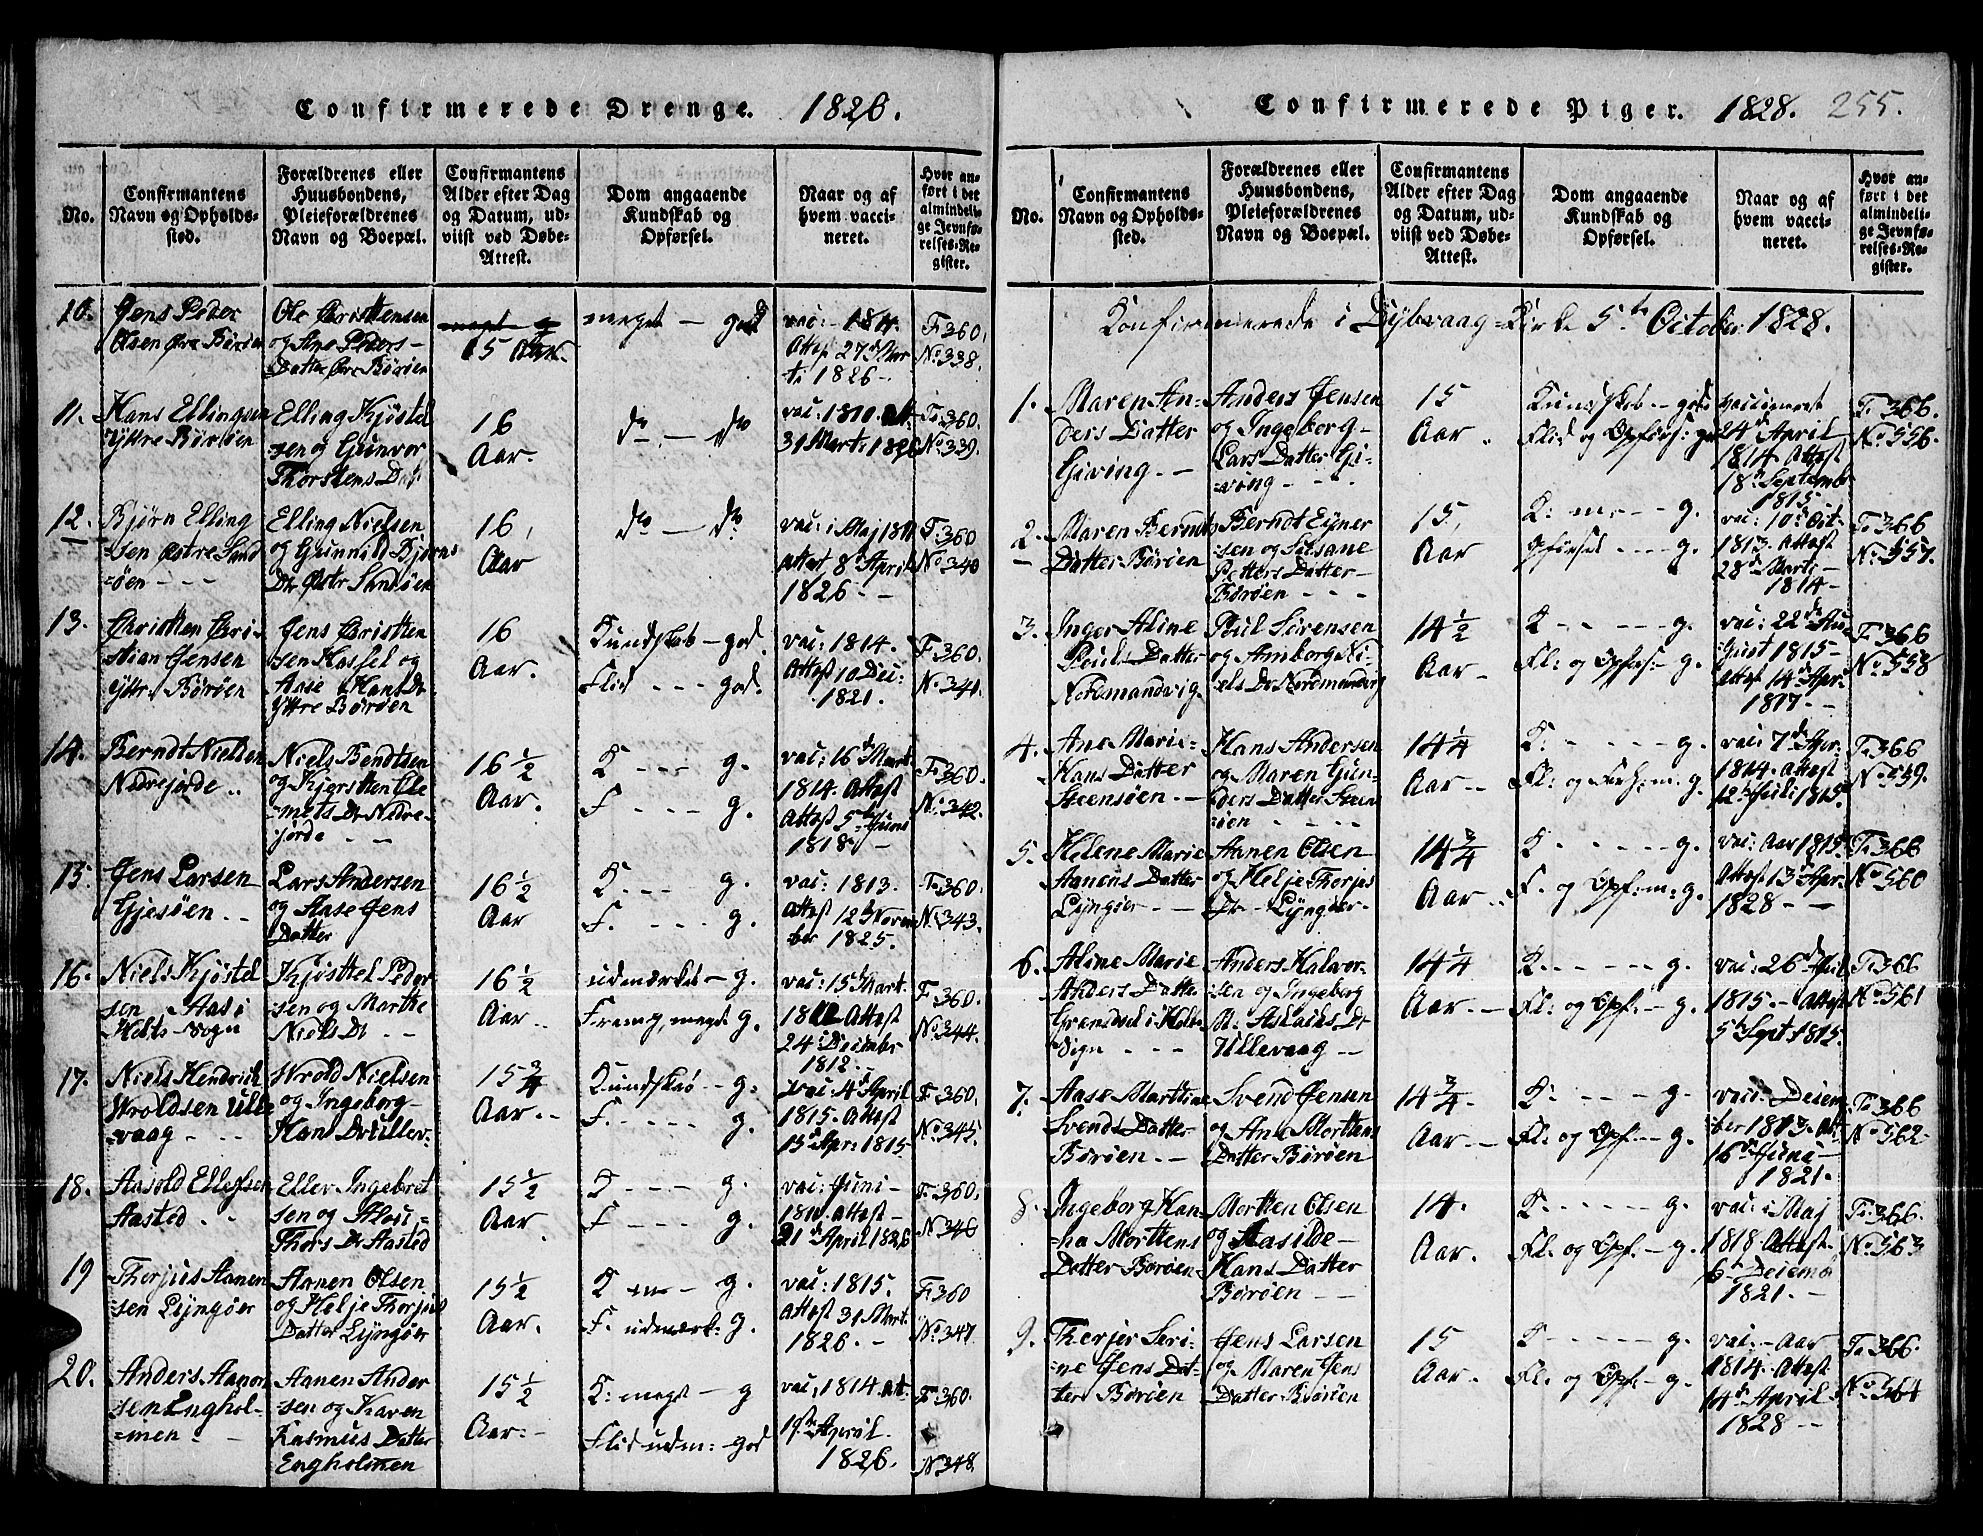 Confirmerede Drenge. 1826.
No.
Confirmantens Navn og Opholdssted.
Forældrenes eller Huusbondens, Pleieforældrenes Navn og Boepæl.
Confirmantens Alder efter Dag og Datum, udviist ved Døbe-Attest.
Dom angaaende Kundskab og Opførsel.
Naar og af hvem vaccineret.
Hvor anført i det almindelige Jevnførelses-Register.
10.
Jens Peder
Olsen Øvre Börøen
Ole Christensen
og Ane Peders-
Datter Øvre Börøen
15 Aar.
meget — god
vac: - 1814.
Attest 27d Mar-
ti 1826 -
F: 360.
No 338.
11.
Hans Ellingsen
Yttre Börøen
Elling Kjöstel
sen og Gunvor
Thorstens Dat
16
Aar.
do — do
vac: 1810. Att
31 Mart: 1826
F: 360.
No 339.
12.
Bjørn Elling
sen Østre Sand
=øen - - -
Elling Nielsen
og Gunnild Bjørns
Dr Østr Sandøen
16,
Aar
do — do
vac: i Maj 1811
attest 8d April
1826 - -
F: 360
No 340
13.
Christen Chri-
stian Jensen
Yttr. Börøen
Jens Christen
sen Hassel og
Aase Hans Dr
Yttre Börøen
16
Aar.
Kundskab - god.
Flid - - - god.
vac: 1814.
Attest 10 Dec:
1821.
F: 360.
No 341.
14.
Berndt Nielsen
Nidrejorde ..
Niels Bendtsen
og Kjersten Cle
=mets Dr Nidre-
jorde - -
16 1/2
Aar.
K - - - g.
F - - - g.
vac: 16d Mart.
1814. Attest
Attest 5te Juni
1818. -
F: 360.
No 342.
15.
Jens Larsen
Gjesøen - -
Lars Andersen
og Aase Jens
Datter
16 1/2
Aar
K. - - - g.
F. - - - - g.
vac: 1813.
Attest 12d Novem
ber 1825.
F: 360.
No 343.
16.
Niels Kjöstel
sen Aas i
Holts-Sogn
Kjöstel Peder
sen og Marthe
Niels Dr - -
16 1/2
Aar ..
udmærket - g.
Fremg. meget g.
vac: 15d Mart.
Attest
24 Decembr
1812. -
F: 360.
No 344.
17.
Niels Hendrich
Wroldsen Ulle
=vaag - - -
Wrold Nielsen
og Ingeborg
Hans Dr Ullev-
15 3/4
Aar. -
Kundskab - g.
F. - - - - g.
vac: 4d April
1815. Attest
15d Apri 1815
F: 360.
No 345.
18.
Aasold Ellefsen
Aasted . -
Ellev Ingebret
sen og
Thors Dr Aasted
15 1/2
Aar
K - - - g.
F - - - g.
vac: Juni -
Attest -
21d April 1826
F: 360.
No 346
19
Therjus Aanen
sen Lyngøer
Aanen Olsen
og Helje Therjus
Datter Lyngøer
15 1/2
Aar.
K m - g.
F. udmærk: g.
vac: 1815.
Attest 31 Mart.
1826. -
F: 360
No: 347.
20.
Anders Aanon
sen Enghol-
=men - -
Aanen Ander
sen og Karen
Rasmus Datter
Engholmen
15 1/2
Aar: -
K: meget - g
Flid udm: god
vac: 1814. at-
April.
1826.
F: 360.
No 348.
Confirmerede Piger. 1828. 255.
No.
Confirmantens Navn og Opholdssted.
Forældrenes eller Huusbondens, Pleieforældrenes Navn og Boepæl.
Confirmantens Alder efter Dag og Datum, udviist ved Døbe-Attest.
Dom angaaende Kundskab og Opførsel.
Naar og af hvem vaccineret.
Hvor anført i det almindelige Jevnførelses-Register.
Konfirmerede i Dybvaag-Kirke 5te October 1828.
1.
Maren An-
ders Datter
Giving. - -
Anders Jensen
og Ingeborg
Lars Datter Gi-
=ving - - -
15
Aar .
Kundskab - god
Flid og Opførs: god
vaccineret
24d April
1814. Attest
18d Septembr
1815.
F: 366.
No 556.
2.
Maren Berndts
Datter Börøen
Berndt Ejner
sen og Susane
Petters Datter -
Börøen - - -
15,
Aar
K: m - - g.
Opförsel - - - g.
vac: 10d Oct-
1813. Attest
28d Marti -
1814 -
F: 366
No 557.
3.
Inger Aline
Pouls Datter
Nordmandvig
Poul Sörensen
og Amborg Ni-
els Dr Nordmandvig
14 1/2
Aar -
K - - - - g.
Fl: og Opførs: - g.
vac: 22de Au
gust 1815 -
Attest 14d Apr.
1817. - -
F: 366
No 558
4.
Ane Marie
Hans Datter
Steensøen - -
Hans Andersen
og Maren Gun-
ders Datter Steen
=søen - - - -
14 1/4
Aar - -
K: - - - - g.
vac: 7d Apr.
1814. Attest
12d Juli 1815.
F: 366
No 559.
5.
Helene Marie
Aanens Datter
Lyngøer - -
Aanen Olsen
og Helje Therjus
Dr - Lyngøer -
14 3/4
Aar - .
K - - - - - g.
F. og Opf: m: g.
vac: Aar 1815.
Attest 13d Apr.
1828 - -
F: 366
No 560
6.
Aline Marie
Anders Datter
i Holt
Sogn - - -
Anders Halvor-
sen og Ingeborg
M: Aslachs Dr
Ullevaag - -
14 1/4
Aar - -
K. - - - - - g.
Fl: og Opf: - g.
vac: 26d Juli
1815. - Attest
5d Sept 1815.
F: 366
No 561
7.
Aase Marthine
Svends Datter
Börøen. - -
Svend Jensen
og Ane Mortens
Datter Börøen
14 3/4
Aar - -
K: - - - - g.
Fl: og Opf: - g.
vac: Decem
ber 1813. Att:
16d Juni -
1821. -
F: 366
No 562.
8.
Ingeborg Han-
=na Morttens
Datter Börøen
Mortten Olsen
og Aasilde -
Hans Datter
Börøen - -
14.
Aar.
K - - - - - g.
Fl: og Opf. - g.
vac: i Maj
1818. Attest.
6d Decembr
1821. -
F: 366.
No 563
9.
Therjer Seri-
=ne Jens Dat-
ter Börøen
Jens Larsen
og Maren Jens
Datter Börøen
15
Aar.
K - - - - - g.
Fl: og Opf. - g.
vac: - Aar
1814. Attest
14d April
1828 - -
F: 366.
No 564